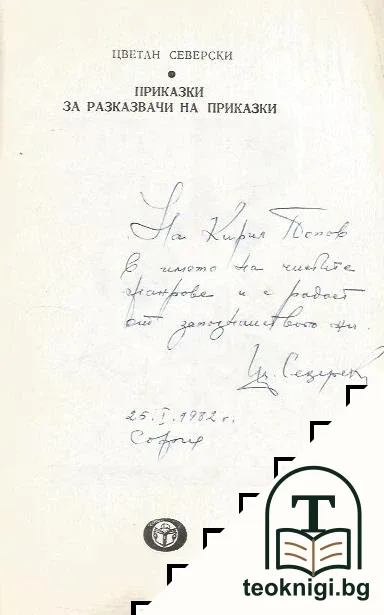 ЦВЕТАН СЕВЕРСКИ
ПРИКАЗКИ
ЗА РАЗКАЗВАЧИ НА ПРИКАЗКИ
На Кирил Попов
в името на чистите
жанрове и с радост
от запознанството ни.
Цв. Северски
25.I.1982 г.
София
T
teoknigi.bg